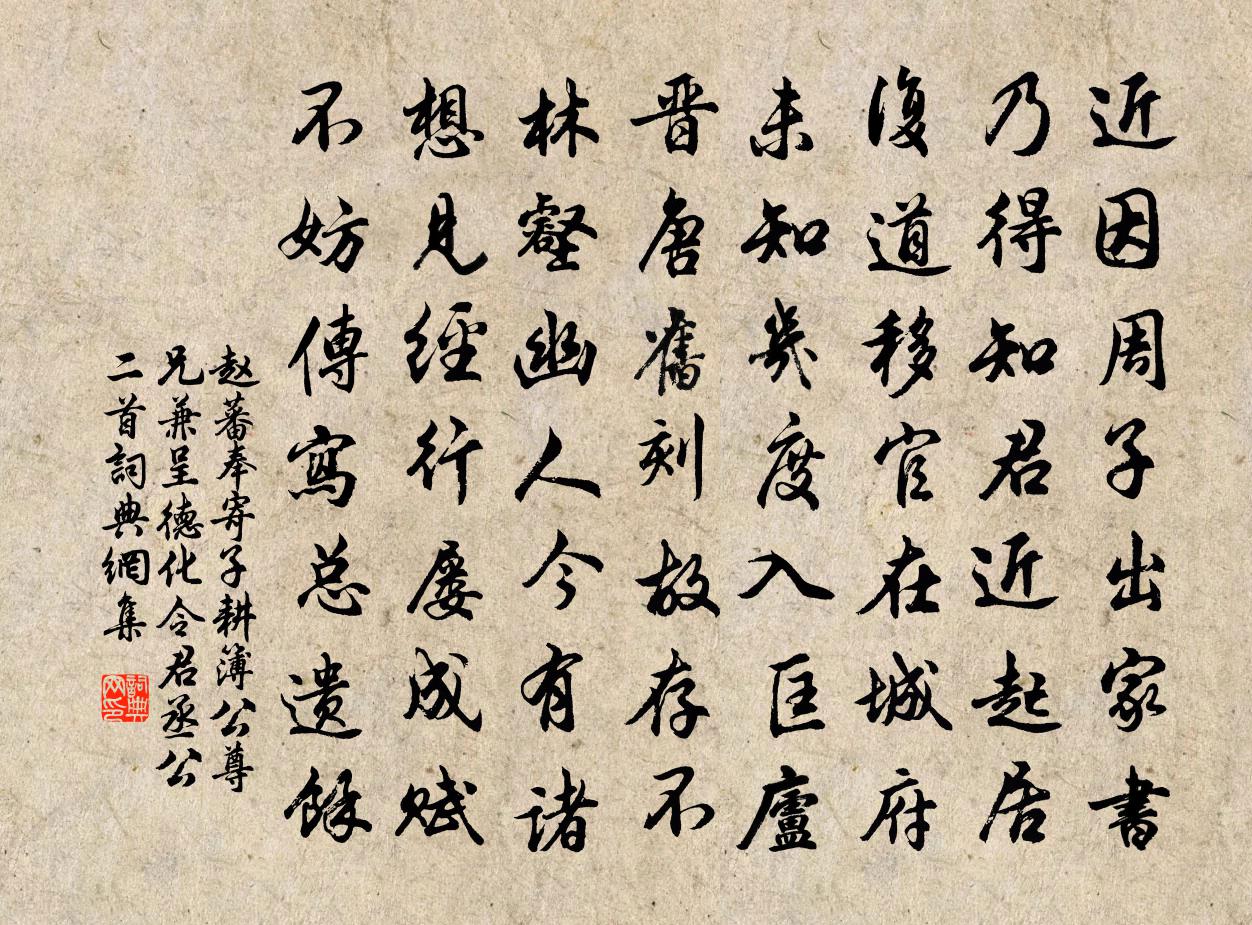 近因周子出家書
乃得知君近起居
復道移官在城府
未知幾度入匡廬
晋唐舊刻故存不
林壑幽人今有諸
想見經行屡成賦
不妨傳寫总遗餘
赵蕃奉寄子耕簿公尊
兄兼呈德化令君丞公
二首詞典網集
詞典
网印